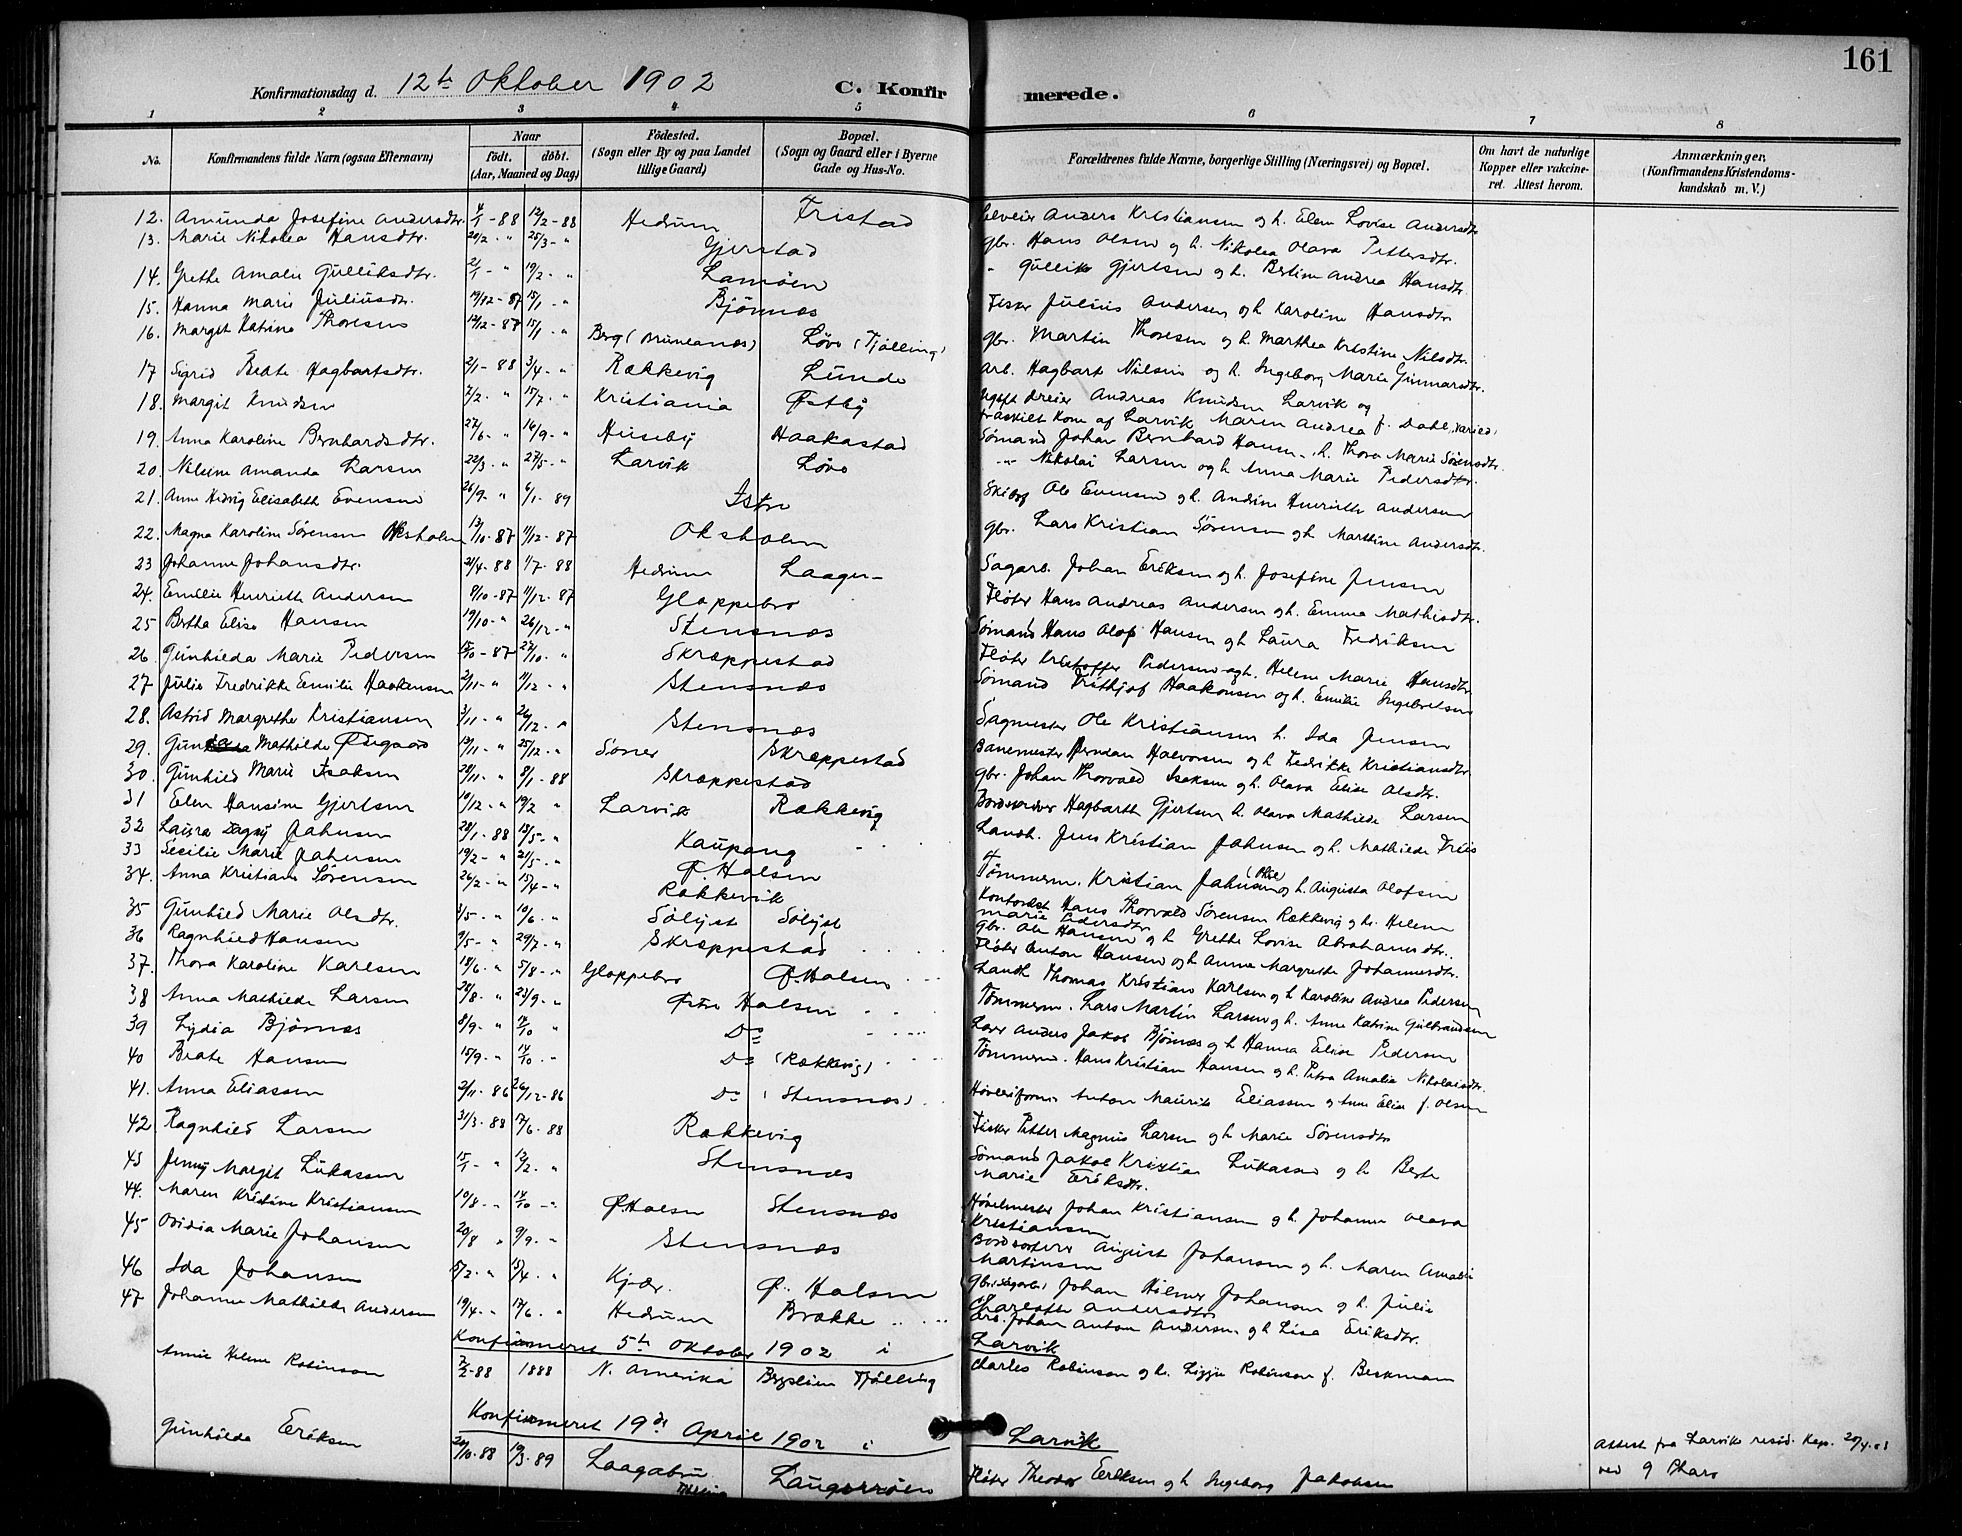 161
Konfirmationsdag d. 12te Oktober 1902 C. Konfirmerede.
1 2 3 4 5 6 7 8
No. Konfirmandens fulde Navn (ogsaa Efternavn) Naar født. døbt. (Aar, Maaned og Dag) Fødested. (Sogn eller By og paa Landet tillige Gaard) Bopæl. (Sogn og Gaard eller i Byerne Gade og Hus-No. Forældrenes fulde Navne, borgerlige Stilling (Næringsvei) og Bopæl. Om havt de naturlige Kopper eller vakcineret. Attest herom. Anmærkninger. (Konfirmandens Kristendomskundskab m. V.)
12. Amunda Josefine Andersdtr. 4/1-88 12/2-88 Hedrum Fristad Anders Kristiansen og h. Elen Lovise Andersdtr
13. Marie Nikolea Hansdtr. 20/2 - " 25/3 - " Gjerstad gbr. Hans Olsen og h. Nikolea Olava Pettersdtr.
14. Grethe Amalie Gulliksdtr. 2/1 - " 19/2 - " Lamøen " Gullik Gjertsen og h. Bertine Andrea Hansdtr
15. Hanna Marie Juliusdtr. 19/12-87 15/1 - " Bjønnes Fisker Julius Andersen og h Karoline Hansdtr
16. Margit Katrine Thoresen 12/12-87 15/1 - " Berg (Brunlanæs) Løve (Tjølling) gbr. Martin Thoresen og h. Marthea Kristine Nilsdtr.
17 Sigrid Beate Hagbartsdtr. 2/1-88 3/4 - " Rækkevig Lunde arb. Hagbart Nilsen og h. Ingeborg Marie Gunnarsdtr.
18. Margit Knudsen 7/2 - " 15/7 - " Kristiania Østby ugift dreier Andreas Knudsen Larvik og
fraskilt Kone af Larvik Maren Andrea f. Dahl
19. Anna Karoline Bernhardsdtr. 27/6 - " 16/9 - " Huseby Haakastad Sømand Johan Bernhard Hansen h. Thora Marie Sørensdtr.
20. Nilsine Amanda Larsen 22/3 - " 27/5 - " Larvik Løve " Nikolai Larsen og h Anna Marie Pedersdtr.
21. Anne Hedvig Elisabeth Evensen 26/9 - " 6/1 - 89 Istre Ole Evensen og h. Andrine Henriette Andersen
22. Magna Karoline Sørensen Oksholm 13/10-87 11/12-87 Oksholm gbr. Lars Kristian Sørensen og h Marthine Andersdtr.
23 Johanne Johansdtr. 21/4-88 1/7-88 Hedrum Laagen Sagarb. Johan Eriksen og h. Josefine Jensen
24. Emilie Henriette Andersen 9/10-87 11/12-87 Gloppebro Fløter Hans Andreas Andersen og h. Emma Mathisdtr.
25 Bertha Elise Hansen 19/10 - " 26/12 - " Stensnæs Sømand Hans Olof Hansen og h Laura Fredriksen
26. Gunhilda Marie Pedersen 15/10-87 27/10 - " Skræppestad Fløter Kristoffer Pedersen og h. Helene Marie Hansdtr
27 Julie Fredrikke Emilie Haakensen 2/11 - " 11/12 - " Stensnæs Sømand Frithjof Haakonsen og h. Emilie Ingebretsen
28. Astrid Margrethe Kristiansen 3/11 - " 26/12 - " Stensnæs Sagmester Ole Kristiansen h. Ida Jensen
29. Mathilde 13/11 - " 25/12 - " Skræppestad Banemester Halvorsen og h Fredrikke Kristiansdtr.
30. Gunhild Marie Isaksen 28/11 - " 8/1-88 Skræppestad gbr. Johan Thorvald Isaksen og h. Olava Elise Olsdtr.
31 Elen Hansine Gjertsen 10/12 - " 19/2 " Larvik Rækkevig Hagbarth Gjertsen h. Olava Mathilde Larsen
32 Laura Dagny Jahnsen 28/1-88 13/5 - " Kaupang Landh. Jens Kristian Jahnsen og h. Mathilde Friis
33 Secilie Marie Jahnsen 19/2 - " 21/5 - " Ø. Halsen Tømmerm. Kristian Jahnsen og h. Augusta Olofsen
34. Anna Kristiane Sørensen 26/2 - " 15/4 - " Rækkevik Kontorbet Hans Thorvald Sørensen Rækkevig og h. Helene
Marie Pedersdtr
35 Gunhild Marie Olsdtr. 3/5 - " 10/6 - " Sølyst Sølyst gbr. Ole Hansen og h Grethe Lovise Abrahamsdtr.
36 Ragnhild Hansen 9/5 - " 29/7 - " Skræppestad Fløter Anton Hansen og h Anne Margrethe Johannesdtr.
37. Thora Karoline Karlsen 18/6 - " 5/8 - " Gloppebro Ø. Halsen Landh Thomas Kristian Karlsen og h Karoline Andrea Pedersen
38 Anna Mathilde Larsen 28/8 - " 23/9 - " Østre Halsen Tømmerm. Lars Martin Larsen og h. Anne Katrine Gulbrandsen
39 Lydia Bjønnes 8/9 - " 14/10 " Do Anders Jakob Bjønnes og h Hanna Elise Pedersen
40 Beate Hansen 15/9 - " 14/10 - " Do (Rækkevig) Tømmerm. Hans Kristian Hansen og h. Petra Amalie Nikolaisdtr.
41. Anna Eliassen 2/11-86 26/12-86 Do (Stensnæs) Anton Maurits Eliassen og Anne Elise f. Olsen
42 Ragnhild Larsen 31/3-88 17/6-88 Rækkevig Fisker Petter Magnus Larsen og h Marie Sørensdtr
43 Jenny Margit Lukassen 15/1 - " 12/2 - " Stensnæs Sømand Jakob Kristian Lukassen og h Berte
Marie Eriksdtr.
44. Maren Kristine Kristiansen 19/8 - " 14/10 - " Ø Halsen Stensnæs Høvelmester Johan Kristiansen og h. Johanne Olava
Kristiansen
45 Ovidia Marie Johansen 20/8 " 9/9 - " Stensnæs August Johansen og h. Maren Amalie
Martinsen
46 Ida Johansen 15/2 - " 15/4 - " Kjær. Ø. Halsen Johan Hilmer Johansen og h. Julie
Charlotte Andersdtr
47 Johanne Mathilde Andersen 19/4 - " 17/6 - " Hedrum Brække arb. Johan Anton Andersen og h Lisa Eriksdtr.
Konfirmeret 5te Oktober 1902 i Larvik
Annie Helene Robinson 2/2-88 1888 N. Amerika Tjølling Charles Robinson og h. Lizzie Robinson f. Beckmann
Konfirmeret 19de April 1902 i Larvik
Gunhilda Eriksen 20/10-88 19/3-89 Laagabru Tjølling Langerrøen Fløter Theodor Eriksen og h Ingeborg Jakobsen
Attest fra Larviks resid. Kap. 20/4-03
ved